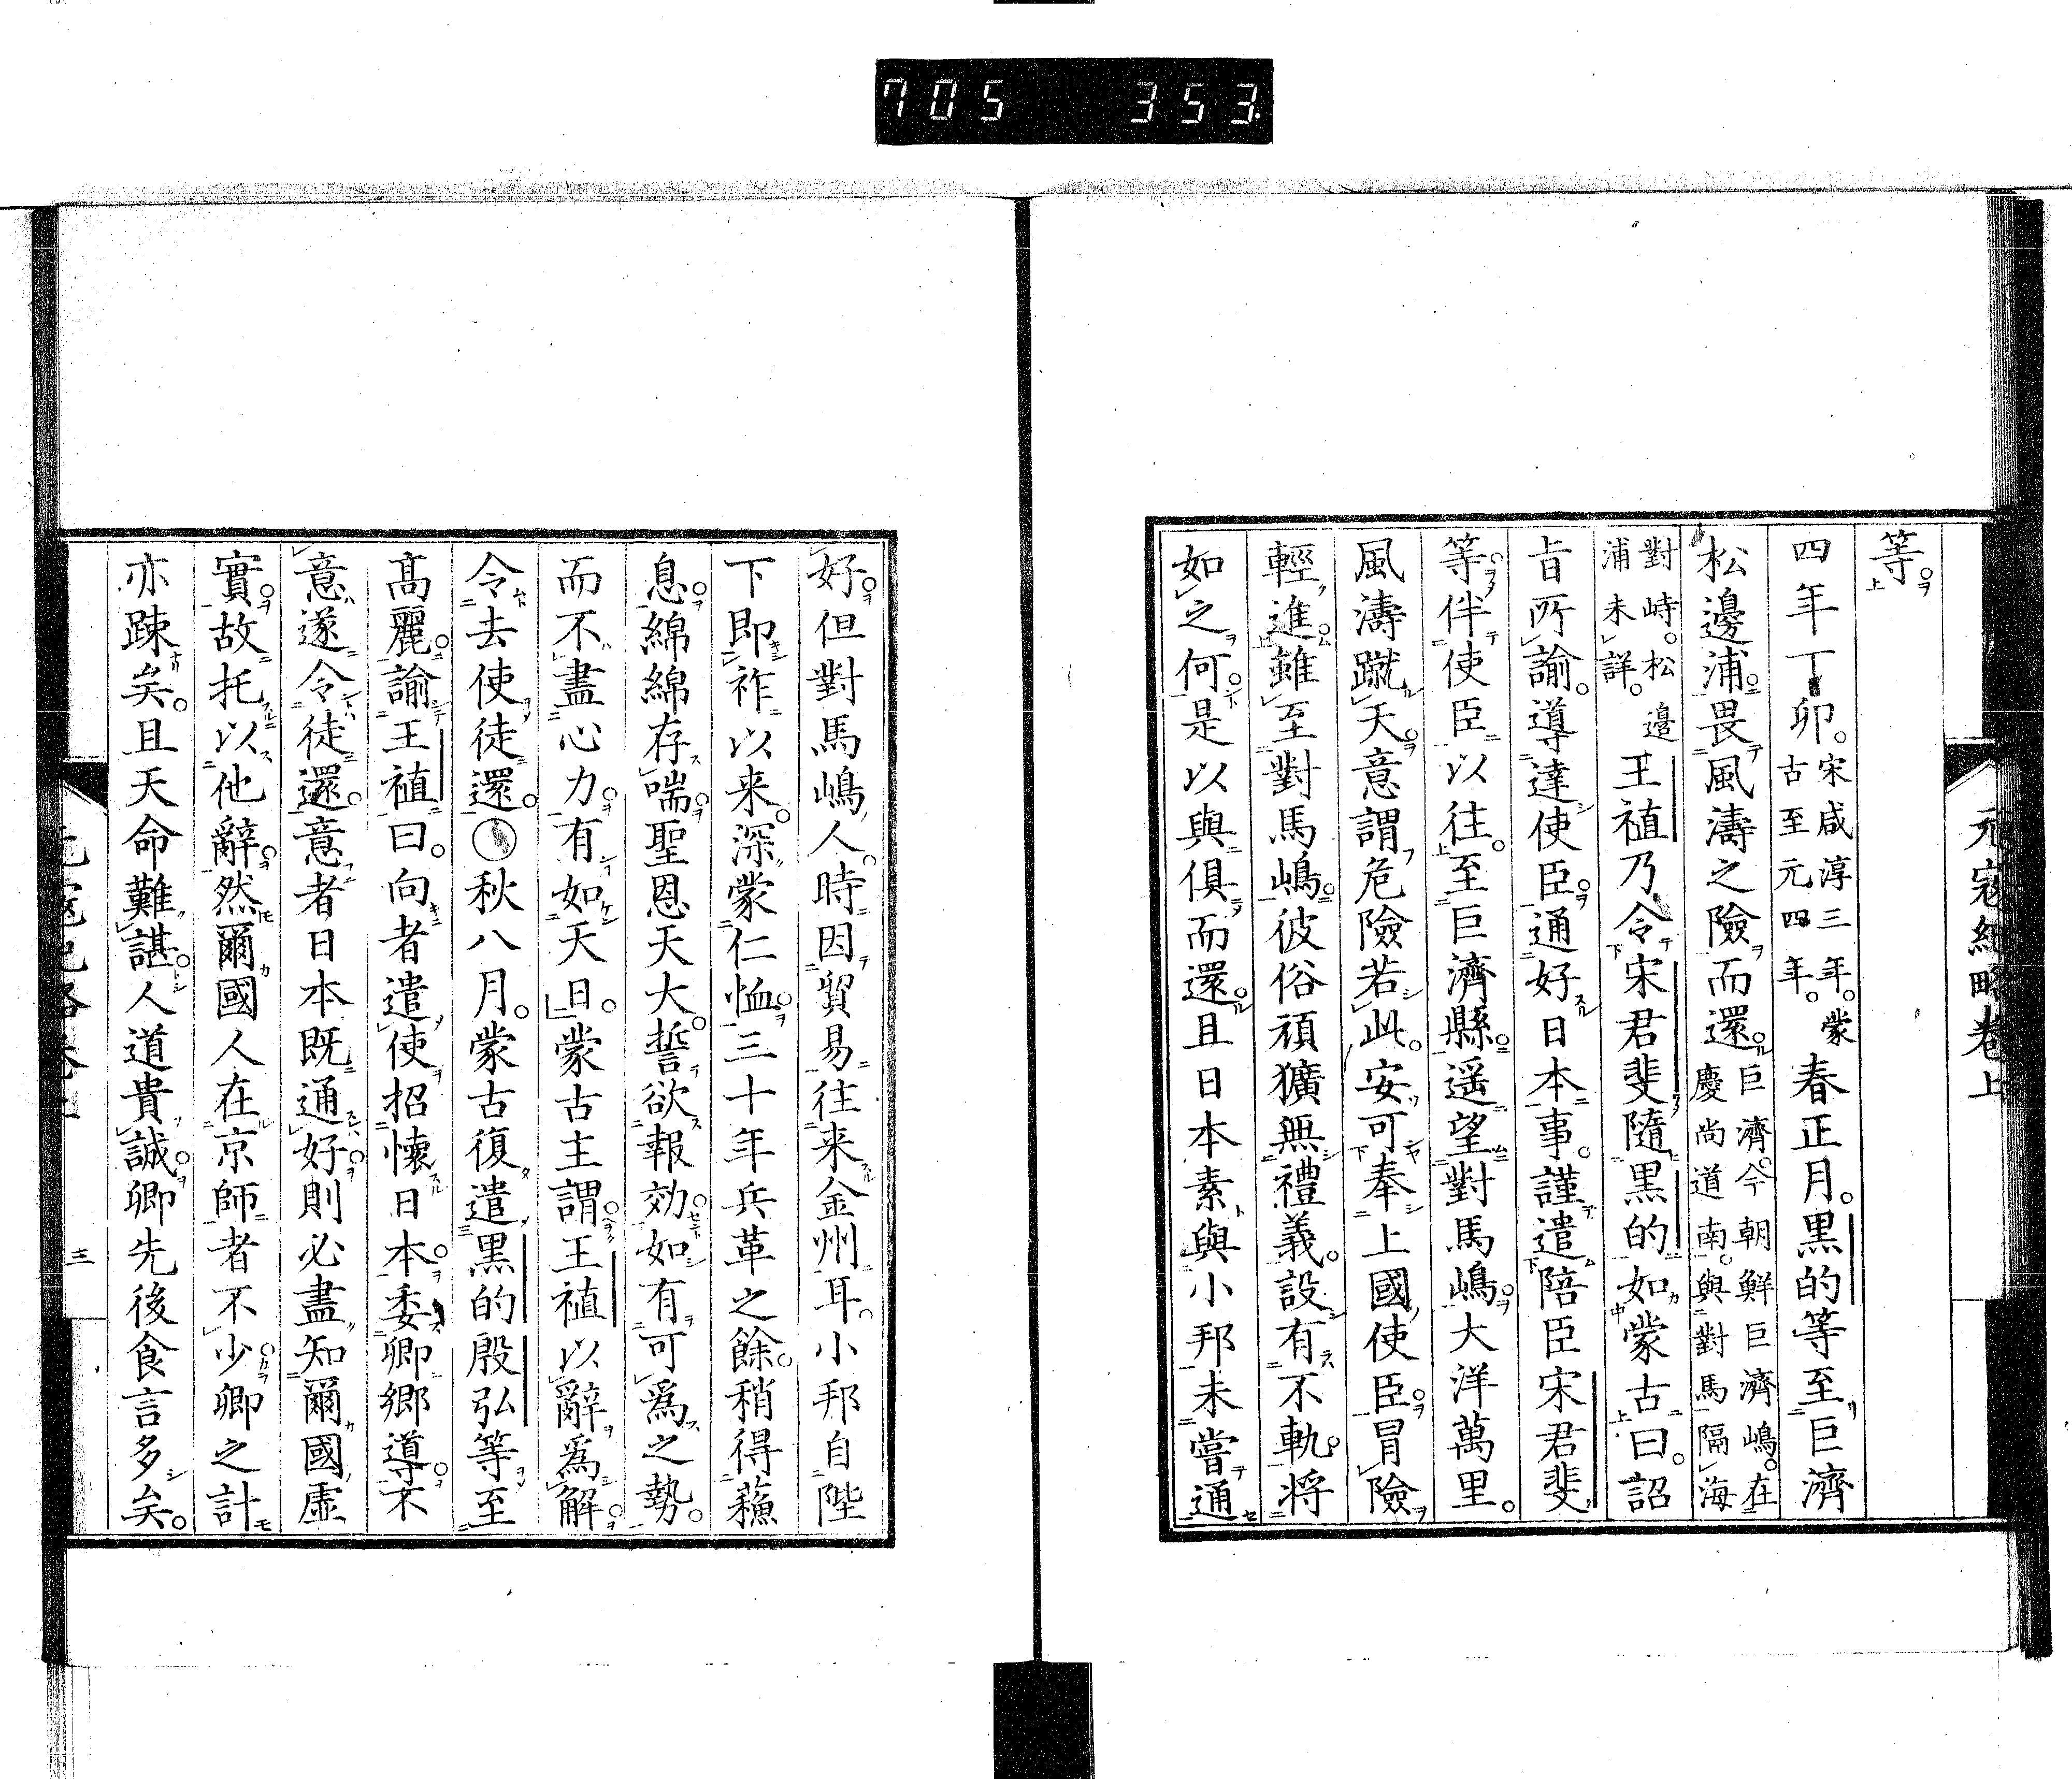 705 353
元寇紀略卷上
等。
四年丁卯。宋咸淳三年。蒙古至元四年。春正月。黒的等至巨濟
松邊浦畏風濤之險而還。巨濟。今朝鮮巨濟嶋。在慶尚道南。與對馬隔海
對峙。松邊浦未詳。王禃乃令宋君斐隨黒的如蒙古曰。詔
旨所諭。導達使臣通好日本事。謹遣陪臣宋君斐
等伴使臣以往。至巨濟縣。遥望對馬嶋。大洋萬里。
風濤蹴天。意謂危險若此。安可奉上國使臣冒險
輕進。雖至對馬嶋。彼俗頑獷無禮義。設有不軌。將
如之何。是以與俱而還。且日本素與小邦未嘗通
好。但對馬嶋人。時因貿易往来金州耳。小邦自陛
下即祚以来。深蒙仁恤。三十年兵革之餘。稍得蘓
息。綿綿存喘。聖恩天大。誓欲報効。如有可爲之勢。
而不盡心力。有如天日。蒙古主謂王禃以辭爲解。
令去使徒還。○秋八月。蒙古復遣黒的殷弘等至
髙麗。諭王禃曰。向者遣使招懐日本。委卿郷導。不
意遂令徒還。意者日本既通好。則必盡知爾國虚
實。故托以他辭。然爾國人在京師者不少。卿之計
亦踈矣。且天命難諶。人道貴誠。卿先後食言多矣。
三